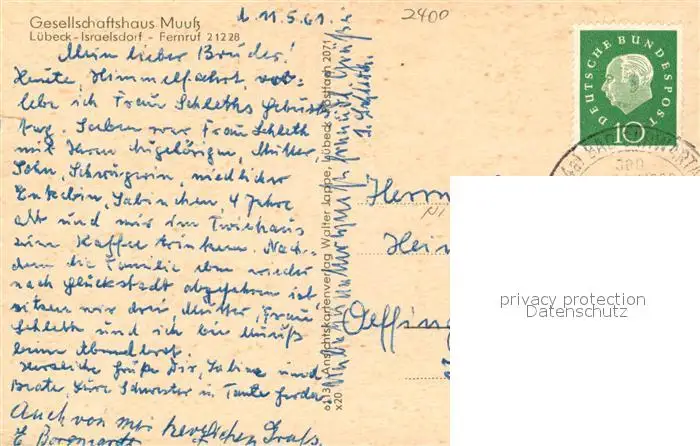 Gesellschaftshaus Muuß
Lübeck-Israelsdorf - Fernruf 21228
d. 11.5.61.
2400
Mein lieber Bruder!
Heute, Himmelfahrt, ver-
lebe ich Frau Schleths Geburts-
tag. Soeben war Frau Schleth
mit ihren Angehörigen, Mutter,
Sohn, Schwägerin, niedlicher
Enkelin, Sabinchen, 4 Jahre
alt und mir im
zum Kaffee trinken. Nach-
dem die Familie eben wieder
nach Glückstadt abgefahren ist,
sitzen wir drei, Mutter, Frau
Schleth und ich bei Muuß
beim Abendbrot.
Herzliche Grüße Dir, Sabine und
Beate, Eure Schwester und Tante Gerda
Auch von mir herzlichen Gruß.
E.
6213 Ansichtskartenverlag Walter Jappe, Lübeck, Postfach 2071
x20
DEUTSCHE BUNDESPOST
10
BAD SCHWARTAU
Herrn
Hein
Oeffing
privacy protection
Datenschutz